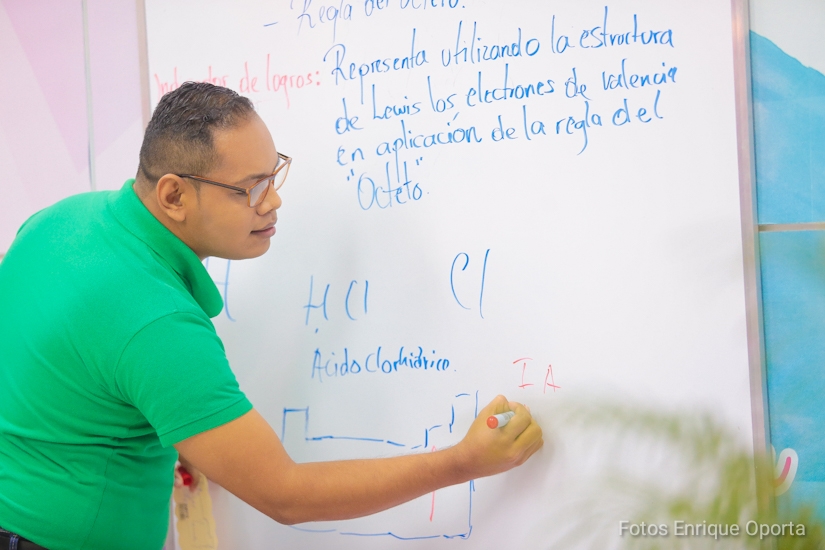 - Regla del octeto.
Indicador de logros: Representa utilizando la estructura
de Lewis los electrones de valencia
en aplicación de la regla del
"Octeto.
H Cl Cl
Acido Clorhidrico.
I A
Fotos Enrique Oporta